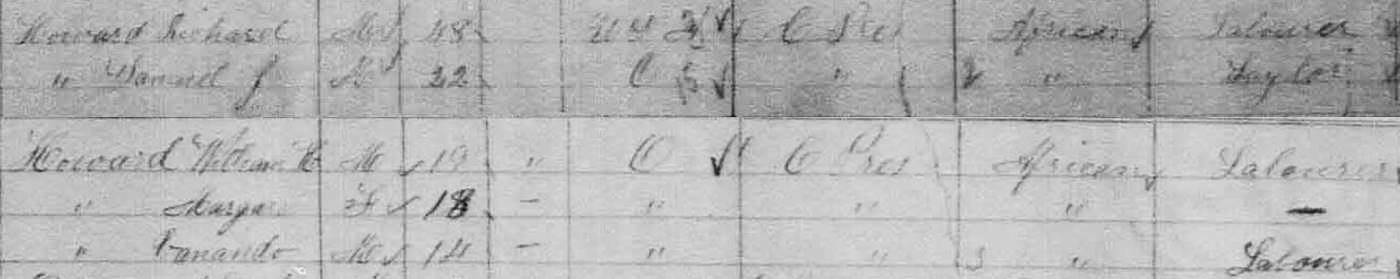 Howard Richard M 48 U S C Pres African Labourer
" Samuel J M 22 O " " Taylor
Howard William H M 19 " O C Pres African Labourer
" Margar F 18 - " " " -
" Canando M 14 - " " " Labourer